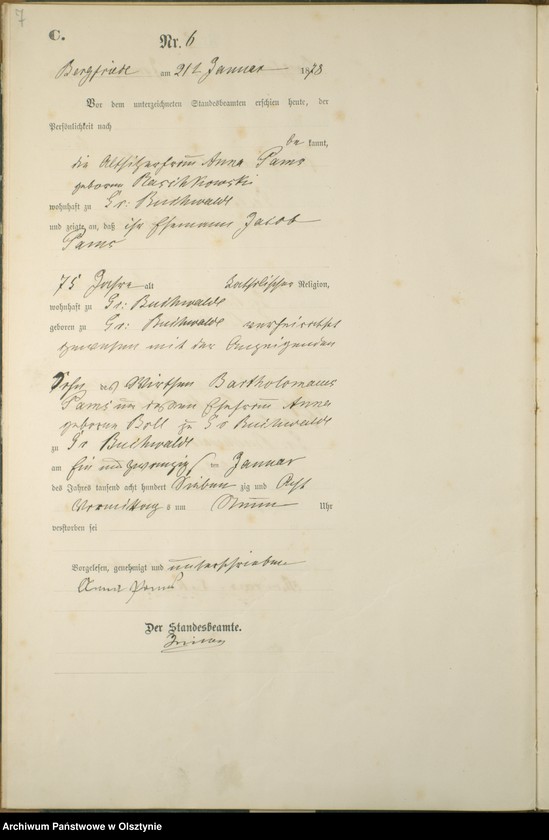 7
C.
Nr. 6
Bergfriede am 21t Januar 1878
Vor dem unterzeichneten Standesbeamten erschien heute, der
Persönlichkeit nach
be kannt,
die Altsitzerfrau Anna Pams
geborene Raschkowski
wohnhaft zu Gr: Buchwalde
und zeigte an, daß ihr Ehemann Jacob
Pams
75 Jahre alt katholischer Religion,
wohnhaft zu Gr: Buchwalde
geboren zu Gr: Buchwalde verheirathet
gewesen mit der Anzeigenden
Sohn des Wirthen Bartholomaus
Pams und dessen Ehefrau Anna
geborene Boll zu Gr Buchwalde
zu Gr Buchwalde
am Ein und zwanzig ten Januar
des Jahres tausend acht hundert Sieben zig und Acht
Vormittag s um Neun Uhr
verstorben sei
Vorgelesen, genehmigt und unterschrieben
Anna Pams
Der Standesbeamte.
Archiwum Państwowe w Olsztynie